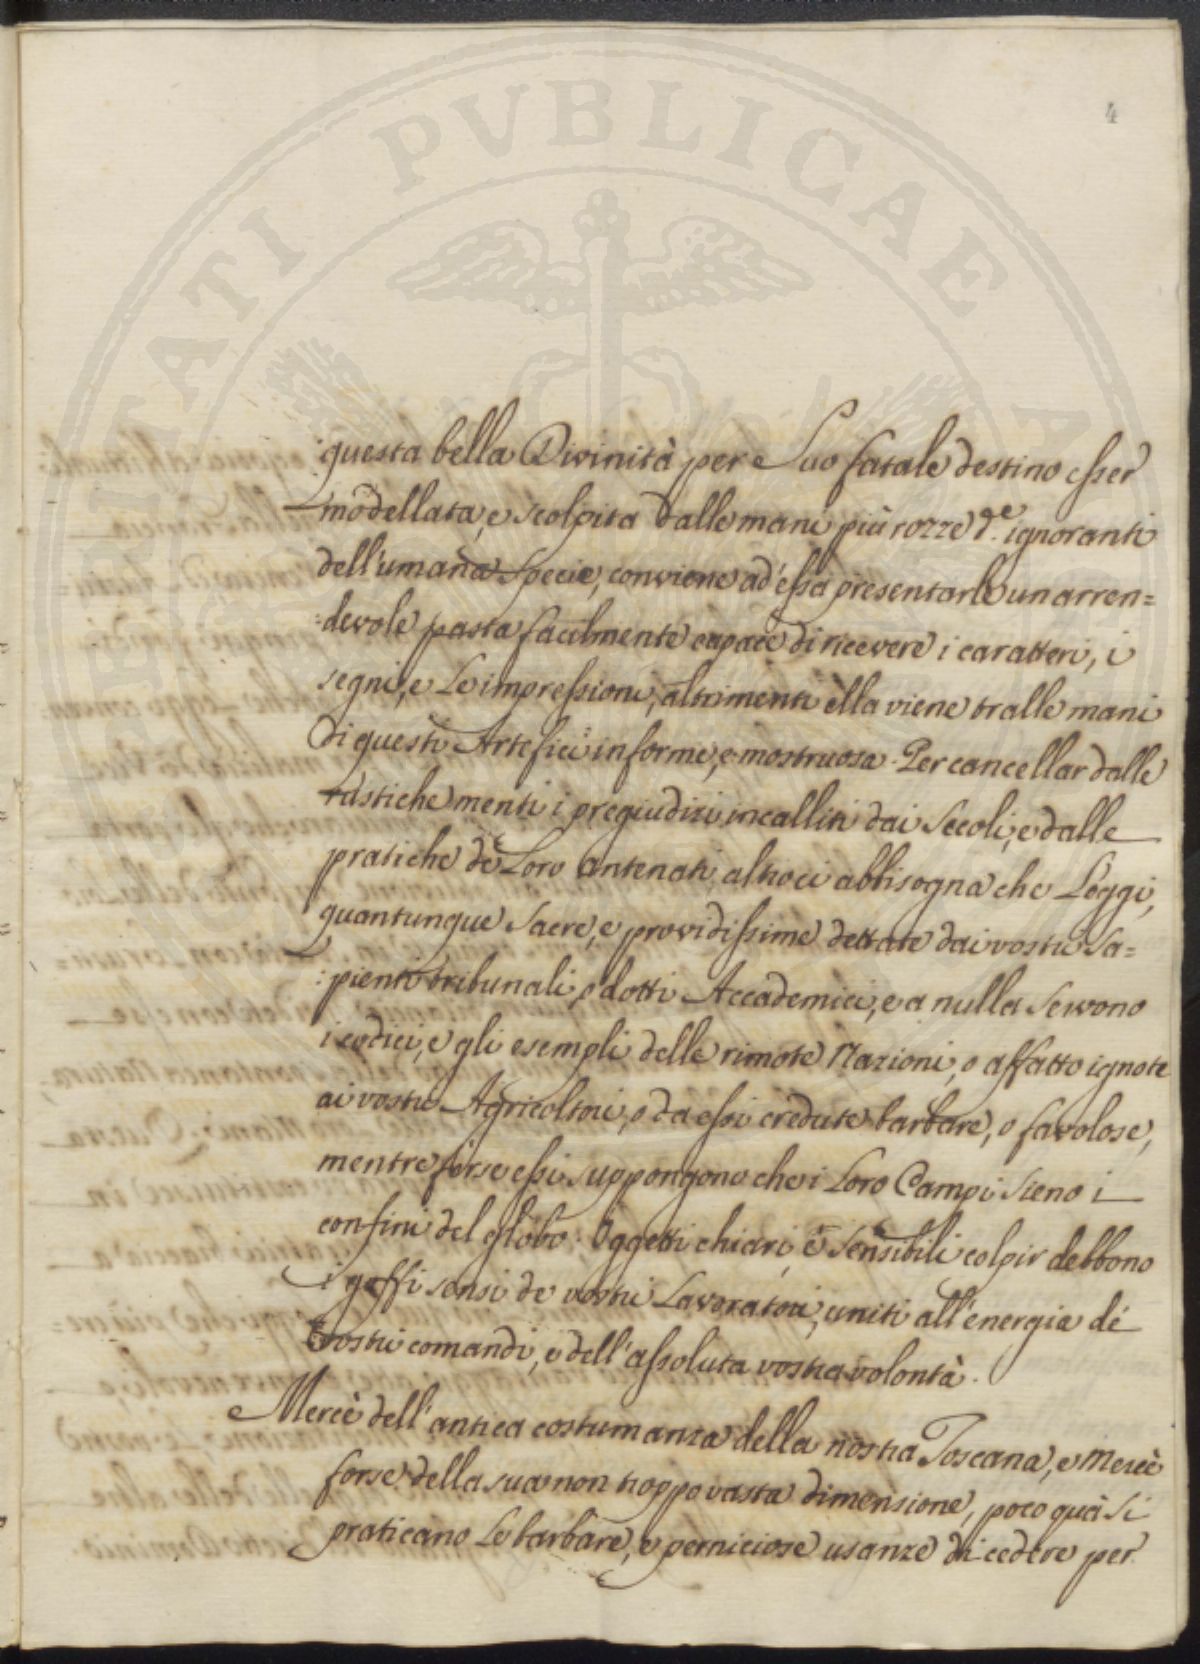 PROSPERITATI PUBLICAE AUGENDAE
4
questa bella Divinità per suo fatale destino esser
modellata, e scolpita dalle mani più rozze, ed ignoranti
dell'umana specie, conviene ad essa presentarle un arren=
:devole pasta facilmente capace di ricevere i caratteri, i
segni, e le impressioni, altrimenti ella viene tralle mani
di questi Artefici informe, e mostruosa. Per cancellar dalle
rustiche menti i pregiudizi incalliti dai secoli, e dalle
pratiche de Loro antenati altro ci abbisogna che Leggi,
quantunque Sacre, e providissime dettate dai vostri sa=
:pienti tribunali, e dotti Accademici, e a nulla servono
i codici, e gli esempli delle rimote Nazioni, o affatto ignote
ai vostri Agricoltori, o da essi credute barbare, o favolose,
mentre forse essi suppongono che i Loro Campi sieno i
confini del globo. Oggetti chiari, e sensibili colpir debbono
i goffi sensi de vostri Lavoratori, uniti all'energia dé
vostri comandi, e dell'assoluta vostra volontà.
Mercè dell'antica costumanza della nostra Toscana, e mercè
forse della sua non troppo vasta dimensione, poco quà si
praticano le barbare, e perniciose usanze di cedere per